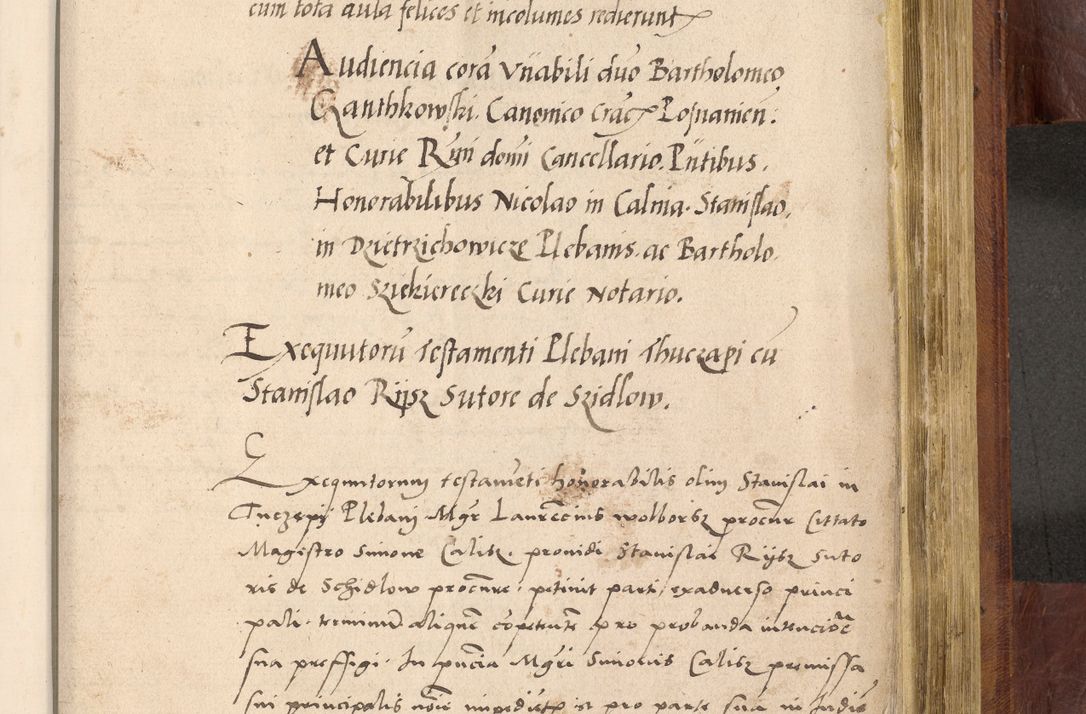 cum tota aula felices et incolumes redierunt
Audiencia corā Vn̄abili dūo Bartholomeo
Ganthkowski. Canonico Crac̄ Posnanien̄:
et Curie Rm̄i domī Cancellario. Pn̄tibus.
Honorabilibus Nicolao in Calnia. Stanislao.
in Dzietrzichowicze Plebanis. ac Bartholo.
meo Sziekiereczki Curie Notario.
Exequutorū Testamenti Plebani Thuczapi cū
Stanislao Rijsz Sutore de Szidlow.
Exequutorum testamēti honorabilis olim Stanislai in
Tuczepÿ Plebani Mgr̄ Laurēcius wolborsz procūr Cittato
Magistro Simone Calisz. prouidi Stanislai Rijsz Suto
ris de Schidlow procūre. petiuit parti exaduerso princi
pali. terminū aliquem cōpetente pro probanda intencioē
sua preffigi. In pn̄cia Mgr̄i Simonis Calisz premissa
sui principalis noīe et pro parte sua in